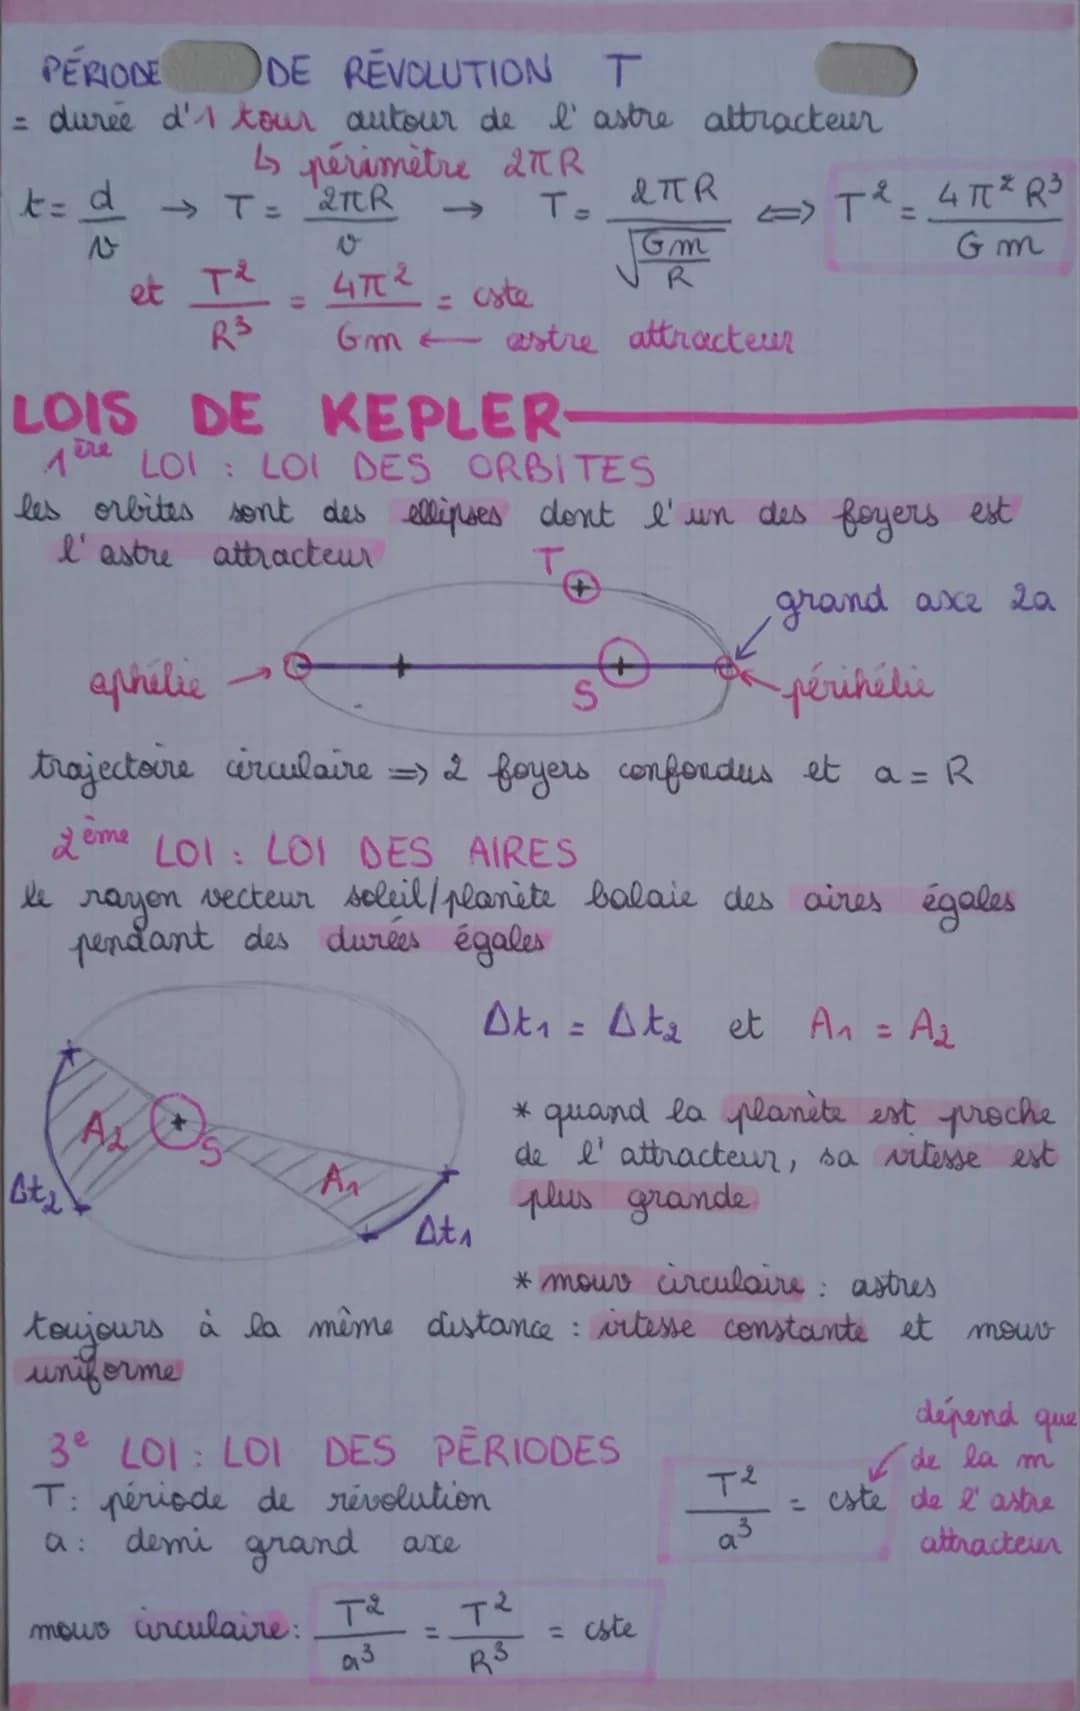 PÉRIODE DE RÉVOLUTION T
= durée d'1 tour autour de l'astre attracteur
↳ périmètre 2πR
t = d/v → T = 2πR/v → T = 2πR/√(Gm/R) ⟺ T² = 4π² R³/Gm
et T²/R³ = 4π²/Gm = cste
← astre attracteur
LOIS DE KEPLER
1ère LOI : LOI DES ORBITES
les orbites sont des ellipses dont l'un des foyers est
l'astre attracteur
T
grand axe 2a
aphélie →
S
périhélie
trajectoire circulaire => 2 foyers confondus et a = R
2ème LOI : LOI DES AIRES
le rayon vecteur soleil/planète balaie des aires égales
pendant des durées égales
Δt1 = Δt2 et A1 = A2
A2
S
A1
Δt2
Δt1
* quand la planète est proche
de l'attracteur, sa vitesse est
plus grande
* mouv circulaire : astres
toujours à la même distance : vitesse constante et mouv
uniforme
3e LOI : LOI DES PÉRIODES
T : période de révolution
a : demi grand axe
T²/a³ = cste
dépend que
de la m
de l'astre
attracteur
mouv circulaire : T²/a³ = T²/R³ = cste